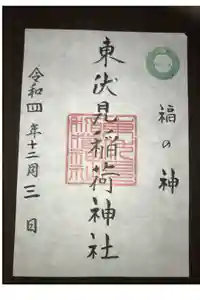 福の神
東伏見稲荷神社
令和四年十二月三日